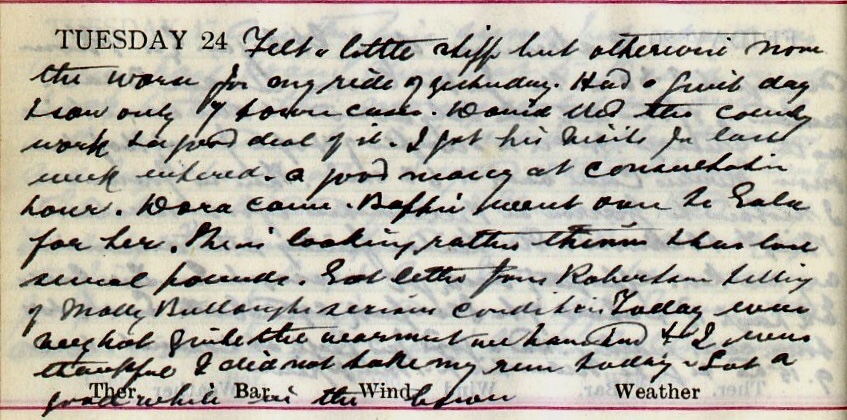 TUESDAY 24 Felt a little stiff but otherwise none
the worse for my ride of yesterday. Had a quiet day
& saw only 7 town cases. David did the country
work & a good deal of it. I got his visits for last
week entered. A good many at consultation
hour. Dora came. Baffie went over to Gala
for her. She is looking rather thinner & has lost
several pounds. Got letter from Robertson telling
of Molly Bullough's serious condition. Today was
very hot quite the warmest we have had & I was
thankful I did not take my run today. Sat a
Ther. Bar. Wind Weather
good while in the